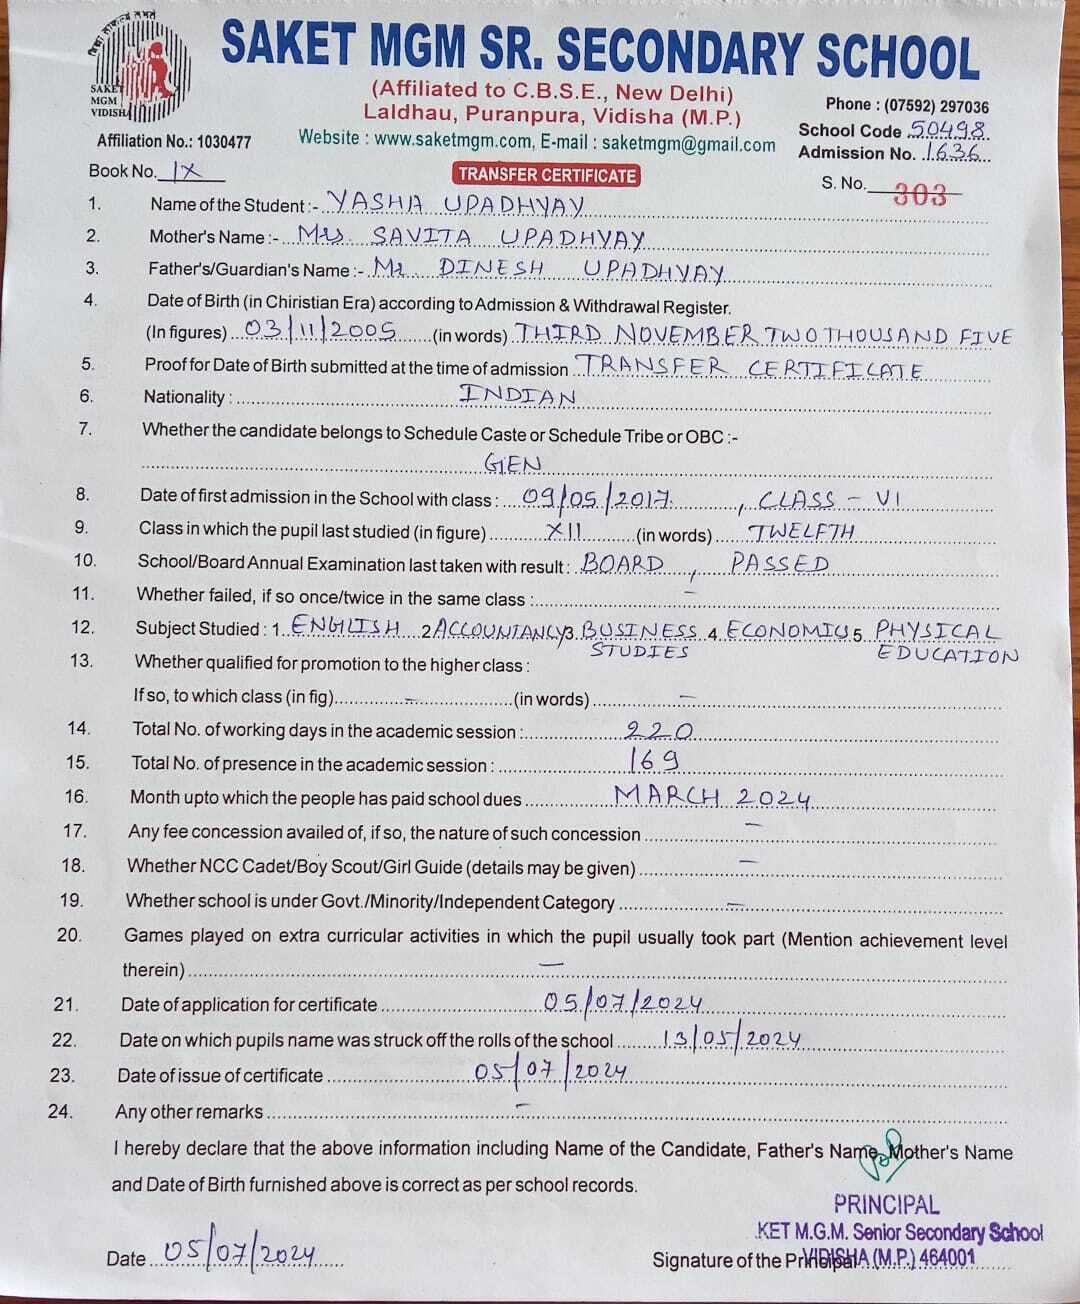 SAKET MGM VIDISHA
SAKET MGM SR. SECONDARY SCHOOL
(Affiliated to C.B.S.E., New Delhi)
Laldhau, Puranpura, Vidisha (M.P.)
Phone : (07592) 297036
School Code 50498
Affiliation No.: 1030477
Website : www.saketmgm.com, E-mail : saketmgm@gmail.com
Admission No. 1636
Book No. IX
TRANSFER CERTIFICATE
S. No. 303
1. Name of the Student :- YASHA UPADHYAY
2. Mother's Name :- Mrs. SAVITA UPADHYAY
3. Father's/Guardian's Name :- Mr. DINESH UPADHYAY
4. Date of Birth (in Chiristian Era) according to Admission & Withdrawal Register.
(In figures) 03/11/2005 (in words) THIRD NOVEMBER TWO THOUSAND FIVE
5. Proof for Date of Birth submitted at the time of admission TRANSFER CERTIFICATE
6. Nationality : INDIAN
7. Whether the candidate belongs to Schedule Caste or Schedule Tribe or OBC :-
GEN
8. Date of first admission in the School with class : 09/05/2017 , CLASS - VI
9. Class in which the pupil last studied (in figure) XII (in words) TWELFTH
10. School/Board Annual Examination last taken with result : BOARD , PASSED
11. Whether failed, if so once/twice in the same class : -
12. Subject Studied : 1. ENGLISH 2 ACCOUNTANCY 3. BUSINESS STUDIES 4. ECONOMICS 5. PHYSICAL EDUCATION
13. Whether qualified for promotion to the higher class :
If so, to which class (in fig) - (in words) -
14. Total No. of working days in the academic session : 220
15. Total No. of presence in the academic session : 169
16. Month upto which the people has paid school dues MARCH 2024
17. Any fee concession availed of, if so, the nature of such concession -
18. Whether NCC Cadet/Boy Scout/Girl Guide (details may be given) -
19. Whether school is under Govt./Minority/Independent Category -
20. Games played on extra curricular activities in which the pupil usually took part (Mention achievement level
therein) -
21. Date of application for certificate 05/07/2024
22. Date on which pupils name was struck off the rolls of the school 13/05/2024
23. Date of issue of certificate 05/07/2024
24. Any other remarks -
I hereby declare that the above information including Name of the Candidate, Father's Name, Mother's Name
and Date of Birth furnished above is correct as per school records.
PRINCIPAL
KET M.G.M. Senior Secondary School
VIDISHA (M.P.) 464001
Date 05/07/2024
Signature of the Principal